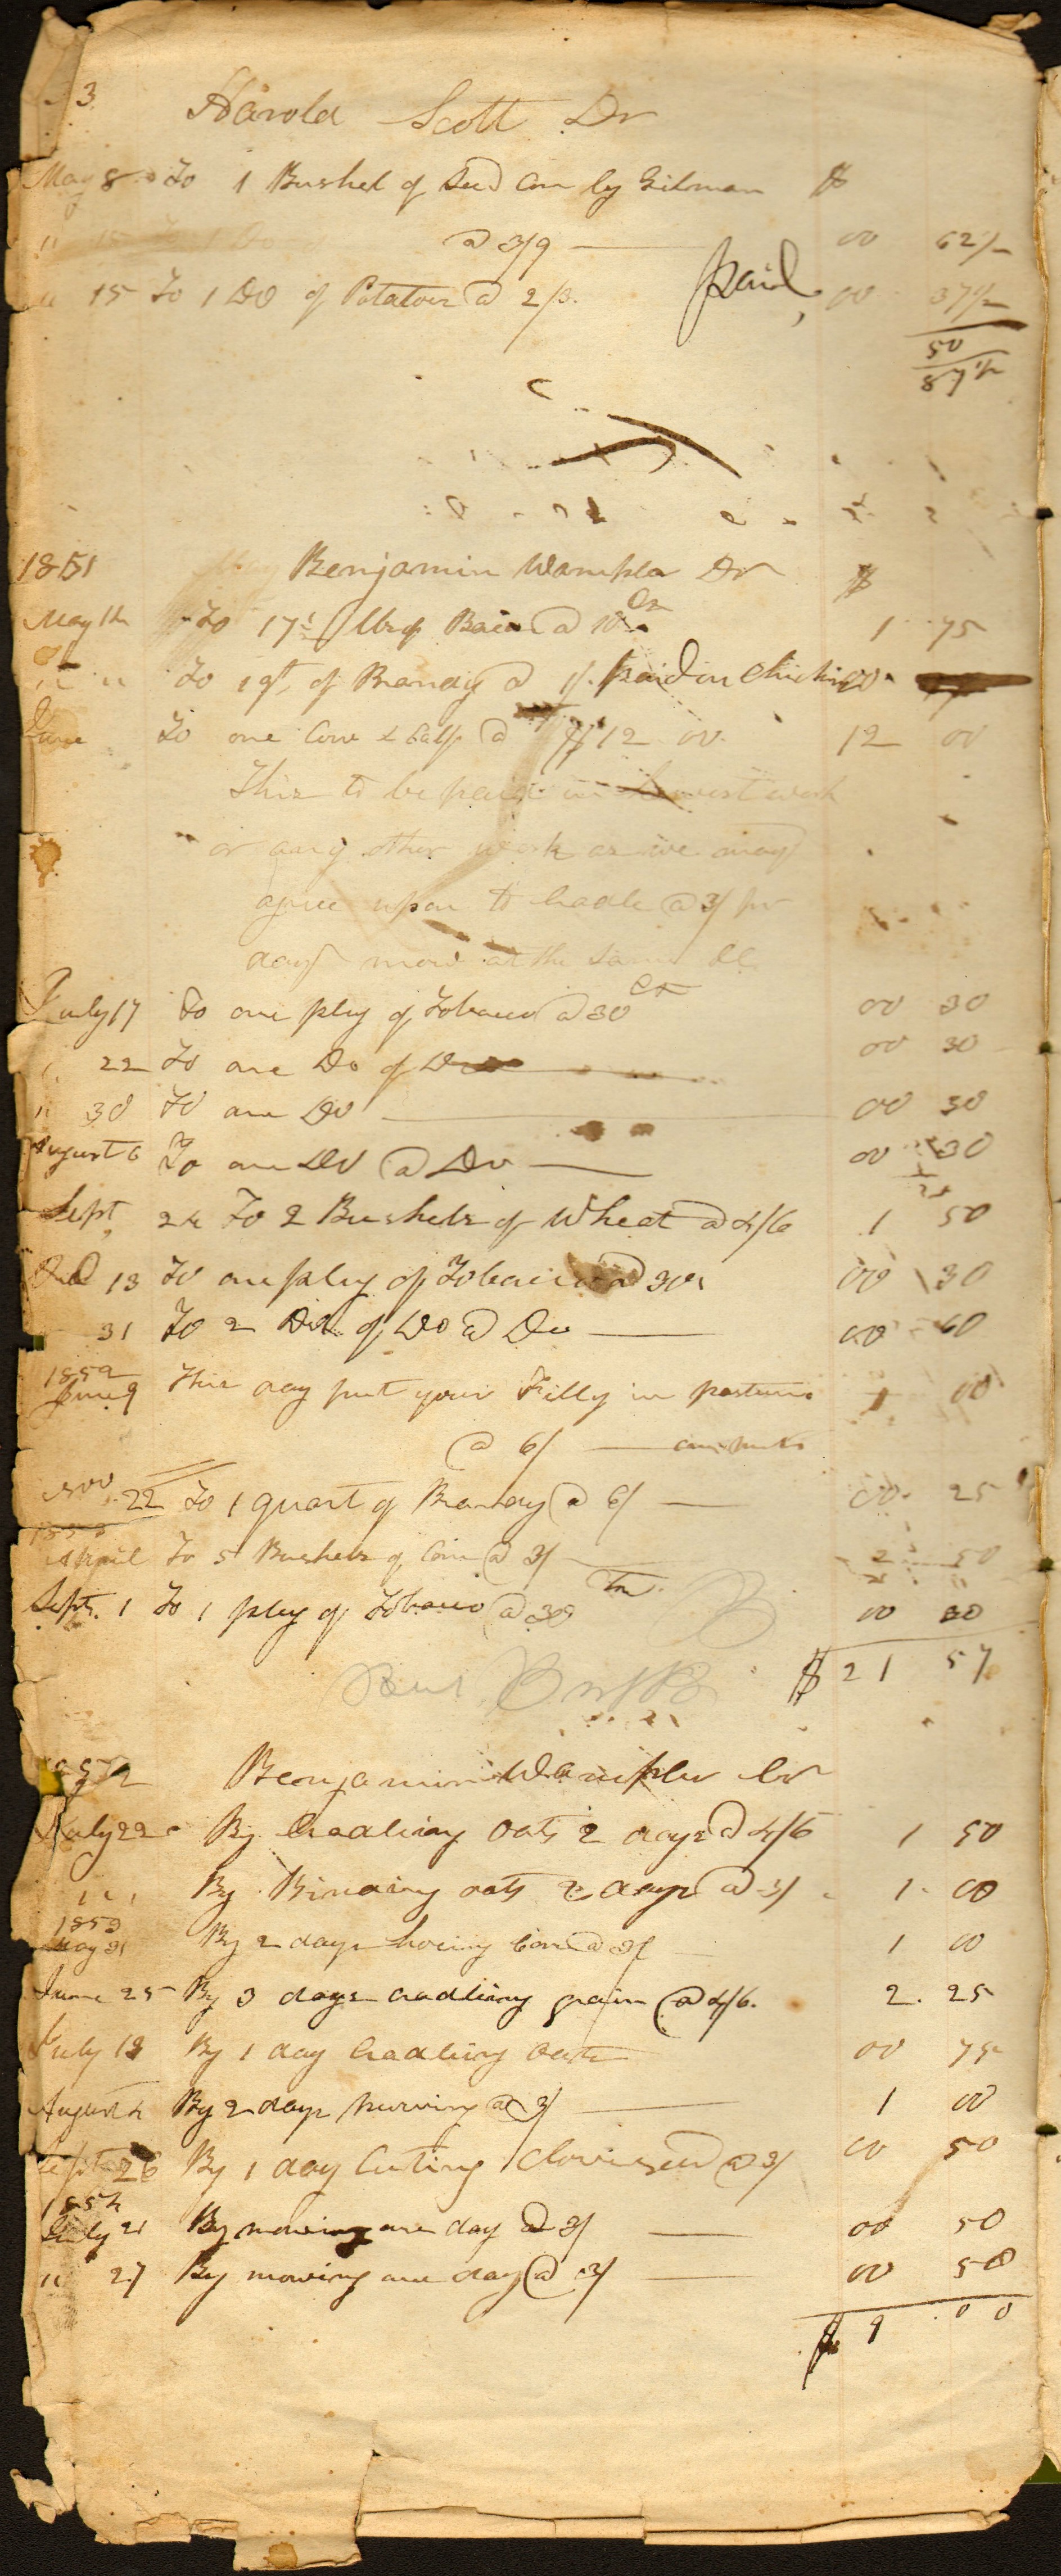 3
Harold Scott Dr
May 8 To 1 Bushel of Seed Corn by Gilman $
" 15 To 1 Do of @ 3/9 00 62 1/2
" 15 To 1 Do of Potatoes @ 2/3. paid, 00 37 1/2
50
87 1/2
1851 Benjamin Wampler Dr $
May 1th To 17 1/2 lbs of Bacon @ 10 cts 1 75
" " To 1 qt, of Brandy @ 1/. paid in Chickins 00
June To one Cow & Calf @ $12 00. 12 00
This to be paid in harvest work
or any other work as we may
agree upon to Cradle @ 3/ per
day mow at the same
July 17 To one plug of Tobacco @ 30 cts 00 30
" 22 To one Do of Do 00 30
" 30 To one Do 00 30
August 6 To one Do @ Do 00 30
Sept, 24 To 2 Bushels of Wheat @ 4/6 1 50
13 To one plug of Tobacco @ 30, 00 30
31 To 2 Do. of Do @ Do 00 60
1852
June 9 This day put your Filly in pasture 1 00
@ 6/
Nov. 22 To 1 quart of Brandy @ 6/ 00. 25
1853
April To 5 Bushels of Corn @ 3/ 2 50
Sept. 1 To 1 plug of Tobacco @ 30 00 30
$ 21 57
1852 Benjamin Wampler Cr
July 22 By Cradling Oats 2 days @ 4/6 1 50
" " By Binding oats 2 days @ 3/ 1. 00
1853
May 31 By 2 days hoeing Corn @ 3/ 1 00
June 25 By 3 days cradling grain @ 4/6. 2. 25
July 12 By 1 day Cradling Oats 00 75
August 4 By 2 days mowing @ 3/ 1 00
Sept 26 By 1 day Cuting Cloverseed @ 3/ 00 50
1854
July 21 By mowing one day @ 3/ 00 50
" 27 By mowing one day @ 3/ 00 50
$ 9 00